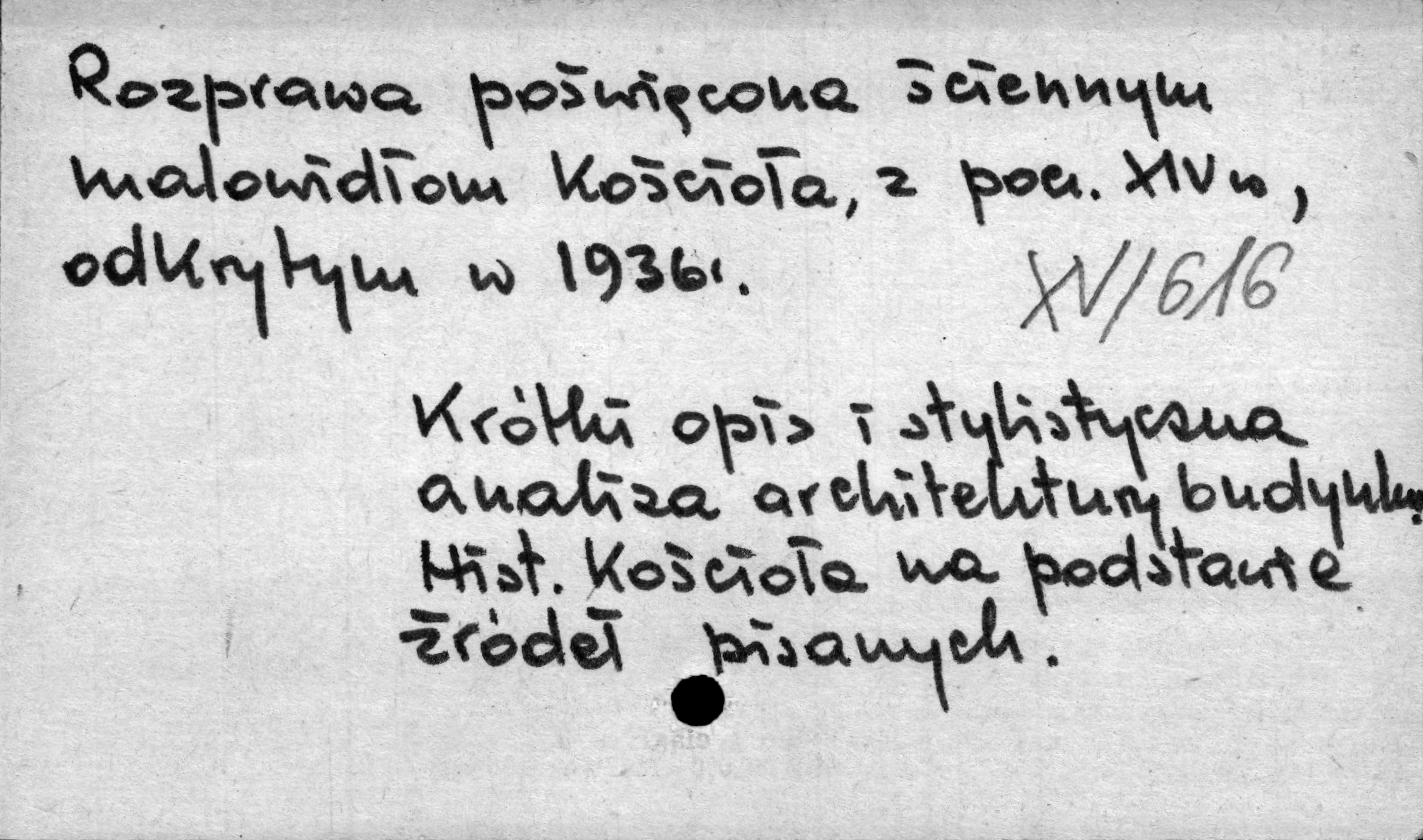 Rozprawa poświęcona ściennym
malowidłom Kościoła, z pocz. XIV w,
odkrytym w 1936r.
XV/616
Krótki opis i stylistyczna
analiza architektury budynku.
Hist. Kościoła na podstawie
źródeł pisanych.